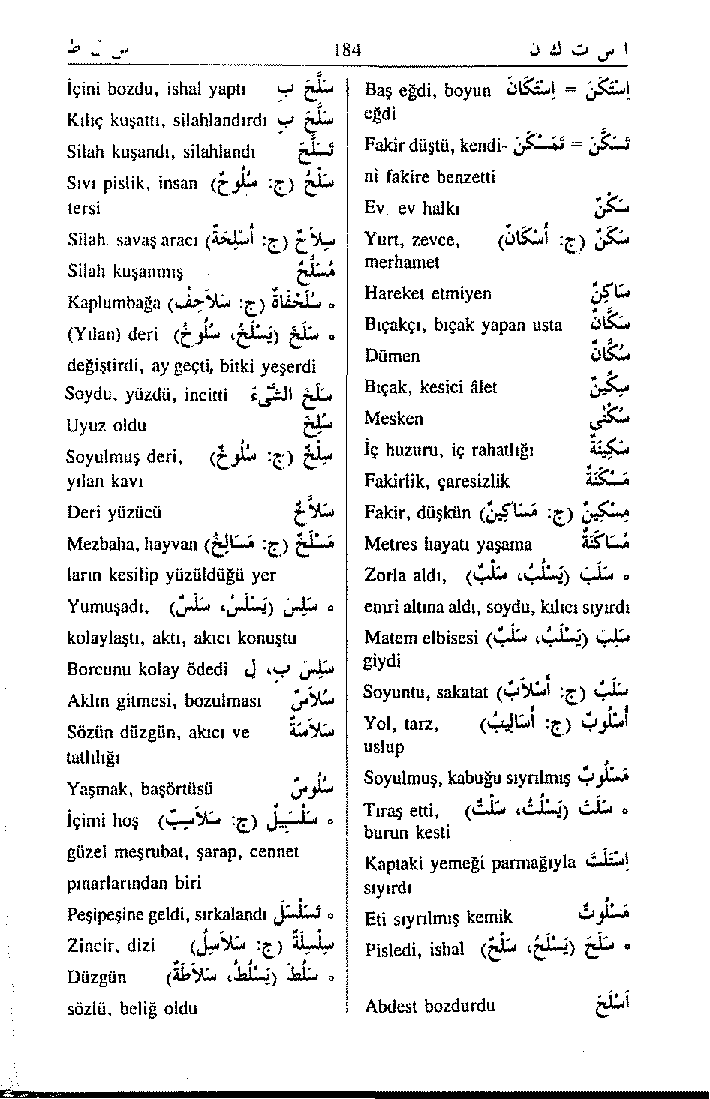 س ل ط 184 ا س ت ك ن
Baş eğdi, boyun اِسْتَكَنَ = اِسْتَكَانَ
eğdi
Fakir düştü, kendi- تَسَكَّنَ = تَمَسْكَنَ
ni fakire benzetti
Ev, ev halkı سَكْنٌ
Yurt, zevce, سَكَنٌ (ج: أَسْكَانٌ)
merhamet
Hareket etmiyen سَاكِنٌ
Bıçakçı, bıçak yapan usta سَكَّانٌ
Dümen سُكَّانٌ
Bıçak, kesici âlet سِكِّينٌ
Mesken سُكْنَى
İç huzuru, iç rahatlığı سَكِينَةٌ
Fakirlik, çaresizlik مَسْكَنَةٌ
Fakir, düşkün مِسْكِينٌ (ج: مَسَاكِينٌ)
Metres hayatı yaşama مُسَاكَنَةٌ
Zorla aldı, ٥ سَلَبَ (يَسْلُبُ، سَلْبٌ)
emri altına aldı, soydu, kılıcı sıyırdı
Matem elbisesi سَلِبَ (يَسْلَبُ، سَلَبٌ)
giydi
Soyuntu, sakatat سَلَبٌ (ج: أَسْلاَبٌ)
Yol, tarz, أُسْلُوبٌ (ج: أَسَالِيبٌ)
uslup
Soyulmuş, kabuğu sıyrılmış مَسْلُوبٌ
Tıraş etti, ٥ سَلَتَ (يَسْلُتُ، سَلْتٌ)
burun kesti
Kaptaki yemeği parmağıyla اِسْتَلَتَ
sıyırdı
Eti sıyrılmış kemik مَسْلُوتٌ
Pisledi, ishal ٥ سَلَحَ (يَسْلَحُ، سَلْحٌ)
Abdest bozdurdu أَسْلَحَ
İçini bozdu, ishal yaptı سَلَّحَ ب
Kılıç kuşattı, silahlandırdı سَلَّحَ ب
Silah kuşandı, silahlandı تَسَلَّحَ
Sıvı pislik, insan سَلْحٌ (ج: سُلُوحٌ)
tersi
Silah, savaş aracı سِلاَحٌ (ج: أَسْلِحَةٌ)
Silah kuşanmış مُسَلَّحٌ
Kaplumbağa ٥ سُلَحْفَاةٌ (ج: سَلاَحِفُ)
(Yılan) deri ٥ سَلَخَ (يَسْلَخُ، سُلُوخٌ)
değiştirdi, ay geçti, bitki yeşerdi
Soydu, yüzdü, incitti سَلَخَ الشَّيْءَ
Uyuz oldu سُلِخَ
Soyulmuş deri, سِلْخٌ (ج: سُلُوخٌ)
yılan kavı
Deri yüzücü سَلاَّخٌ
Mezbaha, hayvan مَسْلَخٌ (ج: مَسَالِخُ)
ların kesilip yüzüldüğü yer
Yumuşadı, ٥ سَلِسَ (يَسْلَسُ، سَلَسٌ)
kolaylaştı, aktı, akıcı konuştu
Borcunu kolay ödedi سَلِسَ ب، ل
Aklın gitmesi, bozulması سُلاَسٌ
Sözün düzgün, akıcı ve سَلاَسَةٌ
tatlılığı
Yaşmak, başörtüsü سُلُوسٌ
İçimi hoş ٥ سَلْسَبِيلٌ (ج: سَلاَسِبٌ)
güzel meşrubat, şarap, cennet
pınarlarından biri
Peşipeşine geldi, sırkalandı ٥ تَسَلْسَلَ
Zincir, dizi سِلْسِلَةٌ (ج: سَلاَسِلُ)
Düzgün ٥ سَلُطَ (يَسْلُطُ، سَلاَطَةٌ)
sözlü, beliğ oldu